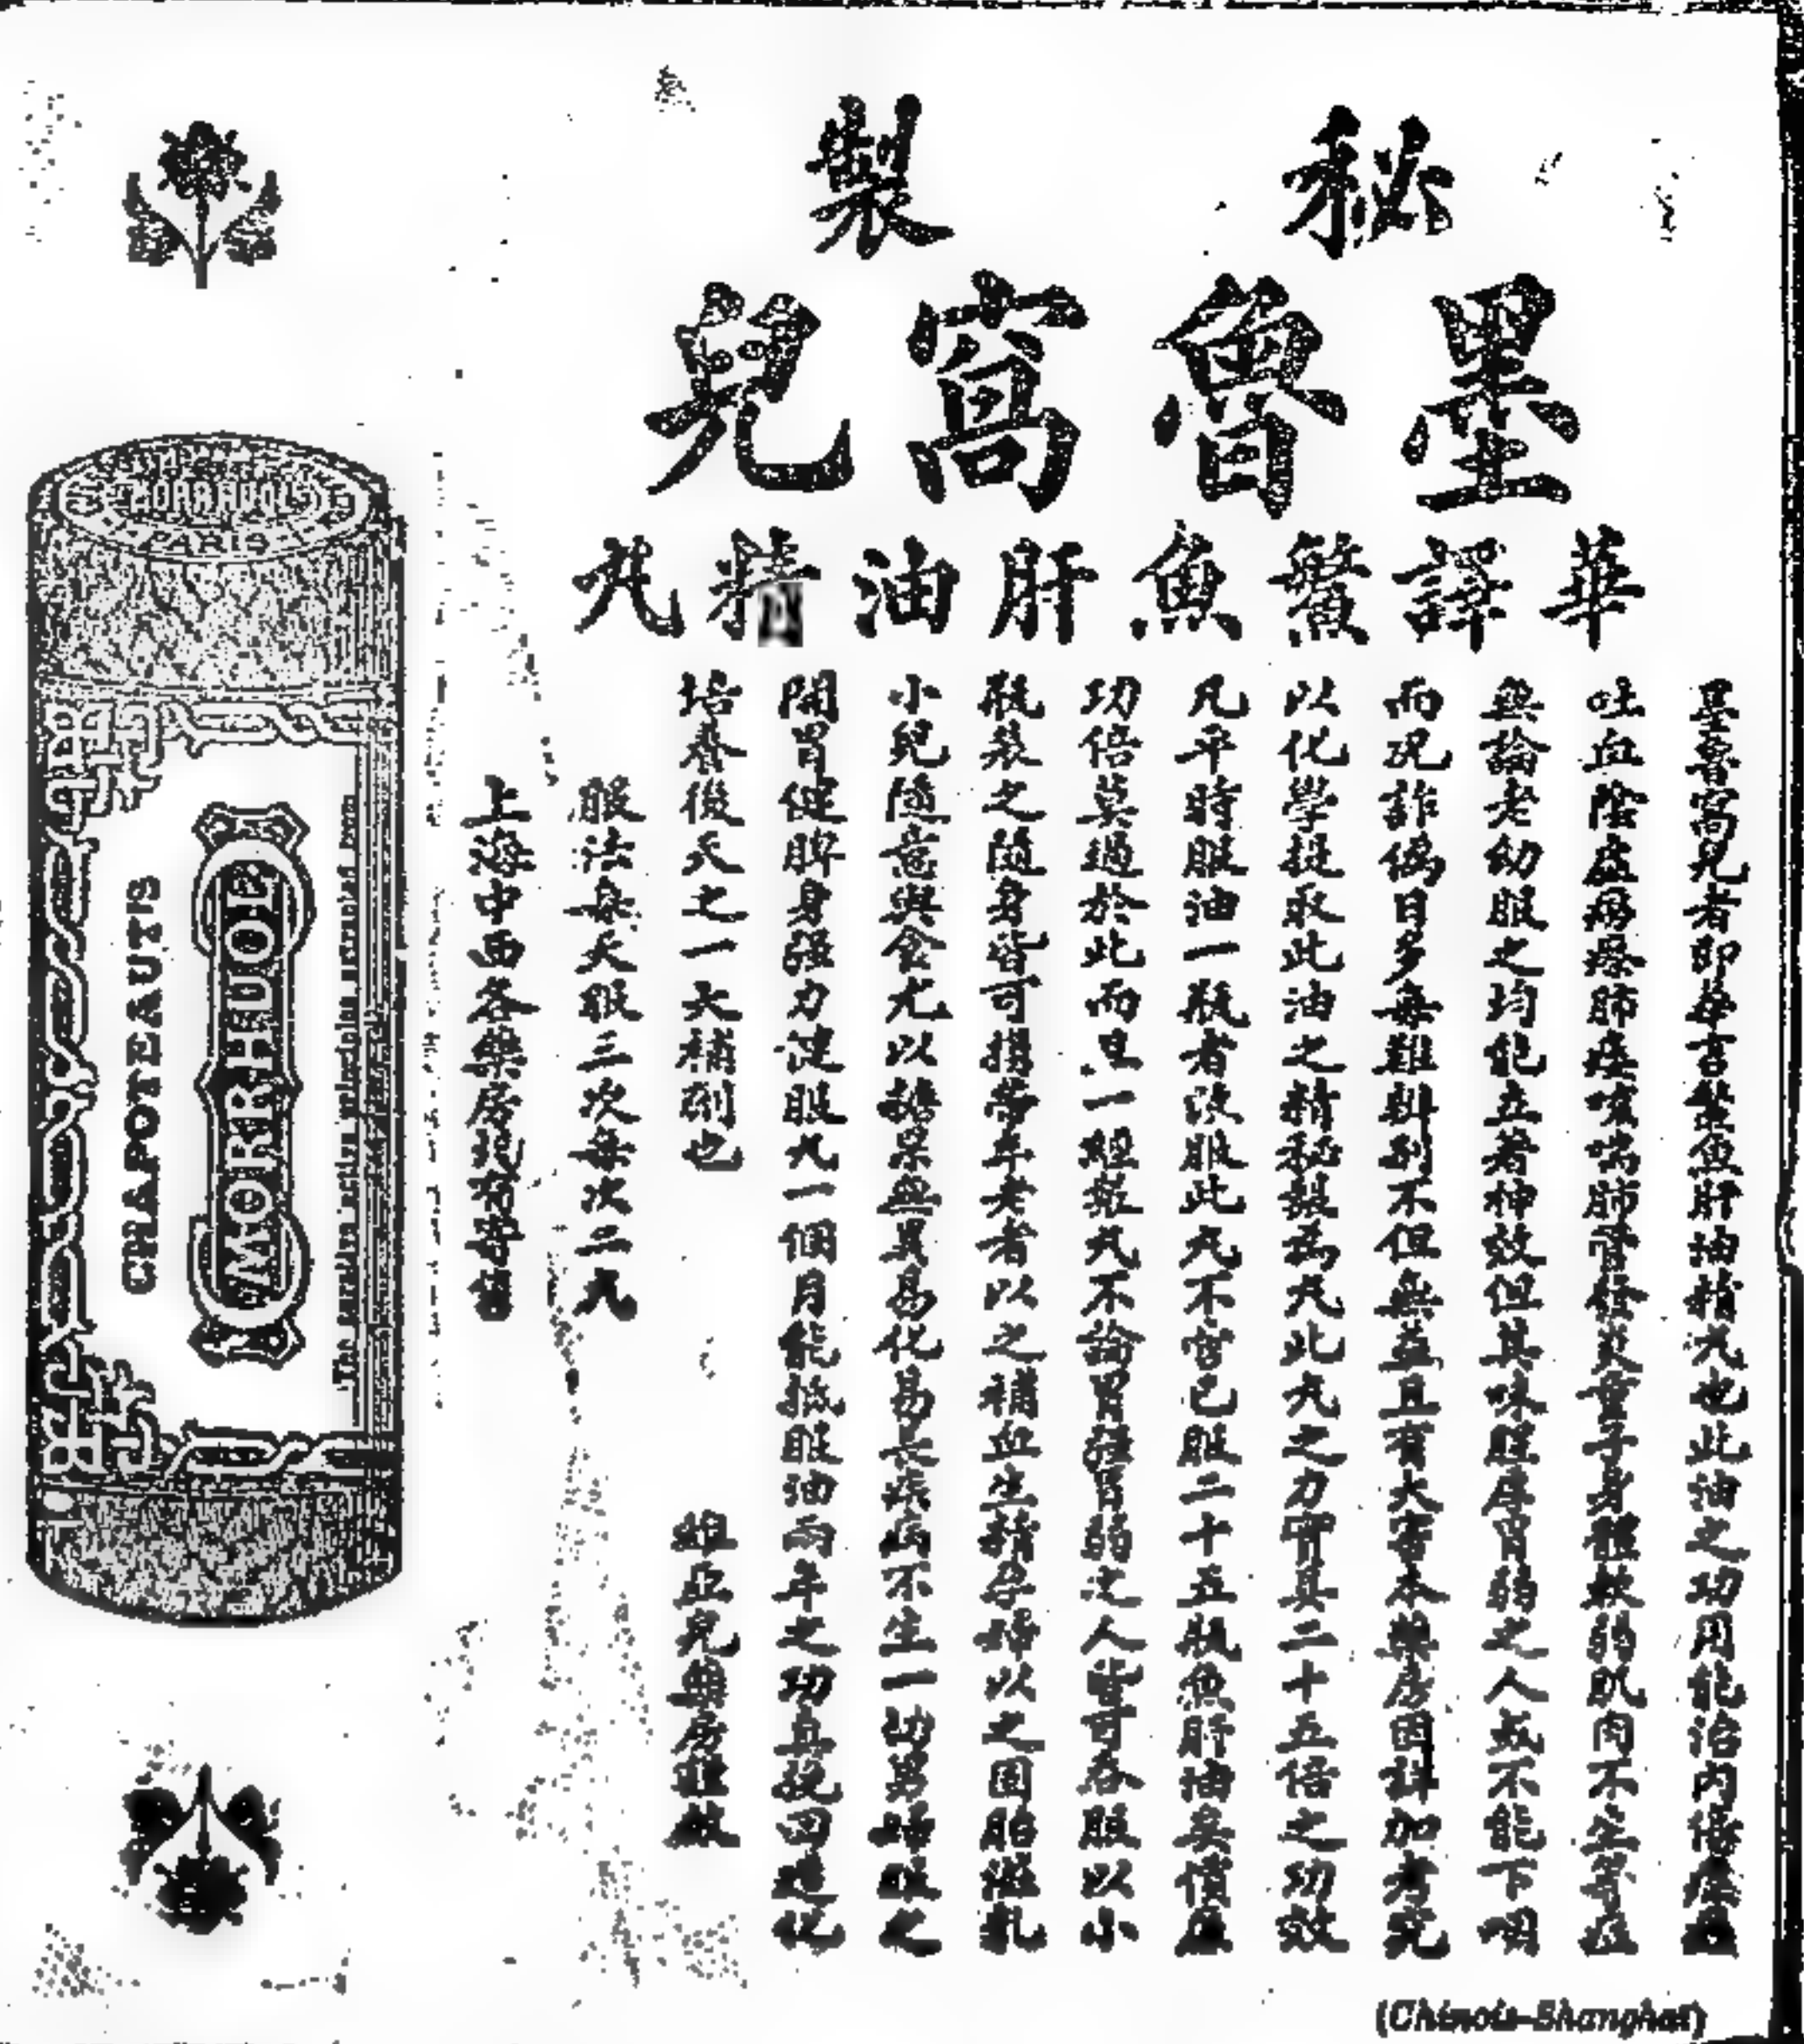 秘製
墨魯窩兒
華譯鱉魚肝油精丸
墨魯窩兒者即華言鱉魚肝油精丸也此油之功用能治內傷
吐血陰虛癆瘵肺痿咳喘肺管發炎童子身體軟弱肌肉不生等症
無論老幼服之均能立著神效但其味腥厚胃弱之人或不能下咽
而況詐偽日多每難糾別不但無益且有大害本藥房因詳加考究
以化學提取此油之精秘製為丸此丸之力實具二十五倍之功效
凡平時服油一瓶者改服此丸不啻已服二十五瓶魚肝油矣價廉
功倍莫過於此而且一經製丸不論胃強胃弱之人皆可吞服以小
瓶裝之隨身皆可攜帶年老者以之補血生精孕婦以之固胎滋乳
小兒隨意與食尤以糖果無異易化易長疾病不生一切男婦服之
開胃健脾身強力健服丸一個月能抵服油兩年之功真挽回造化
培養後天之一大補劑也
亞兒藥房謹啟
服法每天服三次每次二丸
上海中西各藥房寄售
PARIS
CHAPOTEAUT'S
MORRHUOL
The curative active principles extracted from
(Chinois-Shanghai)